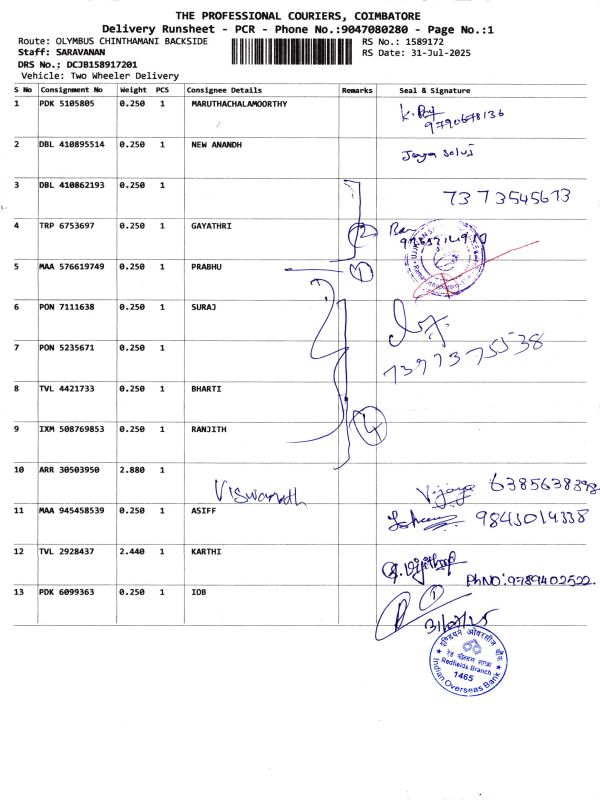 THE PROFESSIONAL COURIERS, COIMBATORE
Delivery Runsheet - PCR - Phone No.:9047080280 - Page No.:1
Route: OLYMBUS CHINTHAMANI BACKSIDE RS No.: 1589172
Staff: SARAVANAN RS Date: 31-Jul-2025
DRS No.: DCJB158917201
Vehicle: Two Wheeler Delivery
S No Consignment No Weight PCS Consignee Details Remarks Seal & Signature
1 PDK 5105805 0.250 1 MARUTHACHALAMOORTHY
9790678136
2 DBL 410895514 0.250 1 NEW ANANDH
3 DBL 410862193 0.250 1
7373545673
4 TRP 6753697 0.250 1 GAYATHRI
2
5 MAA 576619749 0.250 1 PRABHU
1
6 PON 7111638 0.250 1 SURAJ
7 PON 5235671 0.250 1
7397375538
8 TVL 4421733 0.250 1 BHARTI
9 IXM 508769853 0.250 1 RANJITH
4
10 ARR 30503950 2.880 1
Viswanath Vijaya 6385638398
11 MAA 945458539 0.250 1 ASIFF
9843014338
12 TVL 2928437 2.440 1 KARTHI
PhNO: 9789402522.
13 PDK 6099363 0.250 1 IOB
1
31/07/25
इण्डियन ओवरसीज़ बैंक
Redfields Branch
1465
Indian Overseas Bank